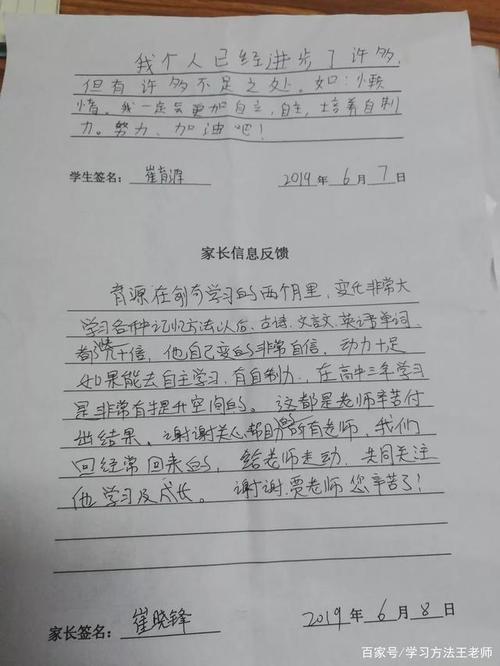 我个人已经进步了许多，
但有许多不足之处。如:懒
惰。我一定会更加自立，自主，培养自制
力。努力、加油吧！
学生签名： 崔育源 2019 年 6 月 7 日
家长信息反馈
育源在创奇学习的两个月里，变化非常大
学习各种记忆方法以后、古诗、文言文、英语单词
都十倍，他自己变的非常自信，动力十足
如果能去自主学习，有自制力，在高中三年学习
是非常有提升空间的。这都是老师辛苦付
出结果。谢谢关心帮助所有老师，我们
回经常回来的，给老师走动、共同关注
他学习及成长。谢谢，贾老师您辛苦了！
家长签名： 崔晓锋 2019 年 6 月 8 日
百家号/学习方法王老师